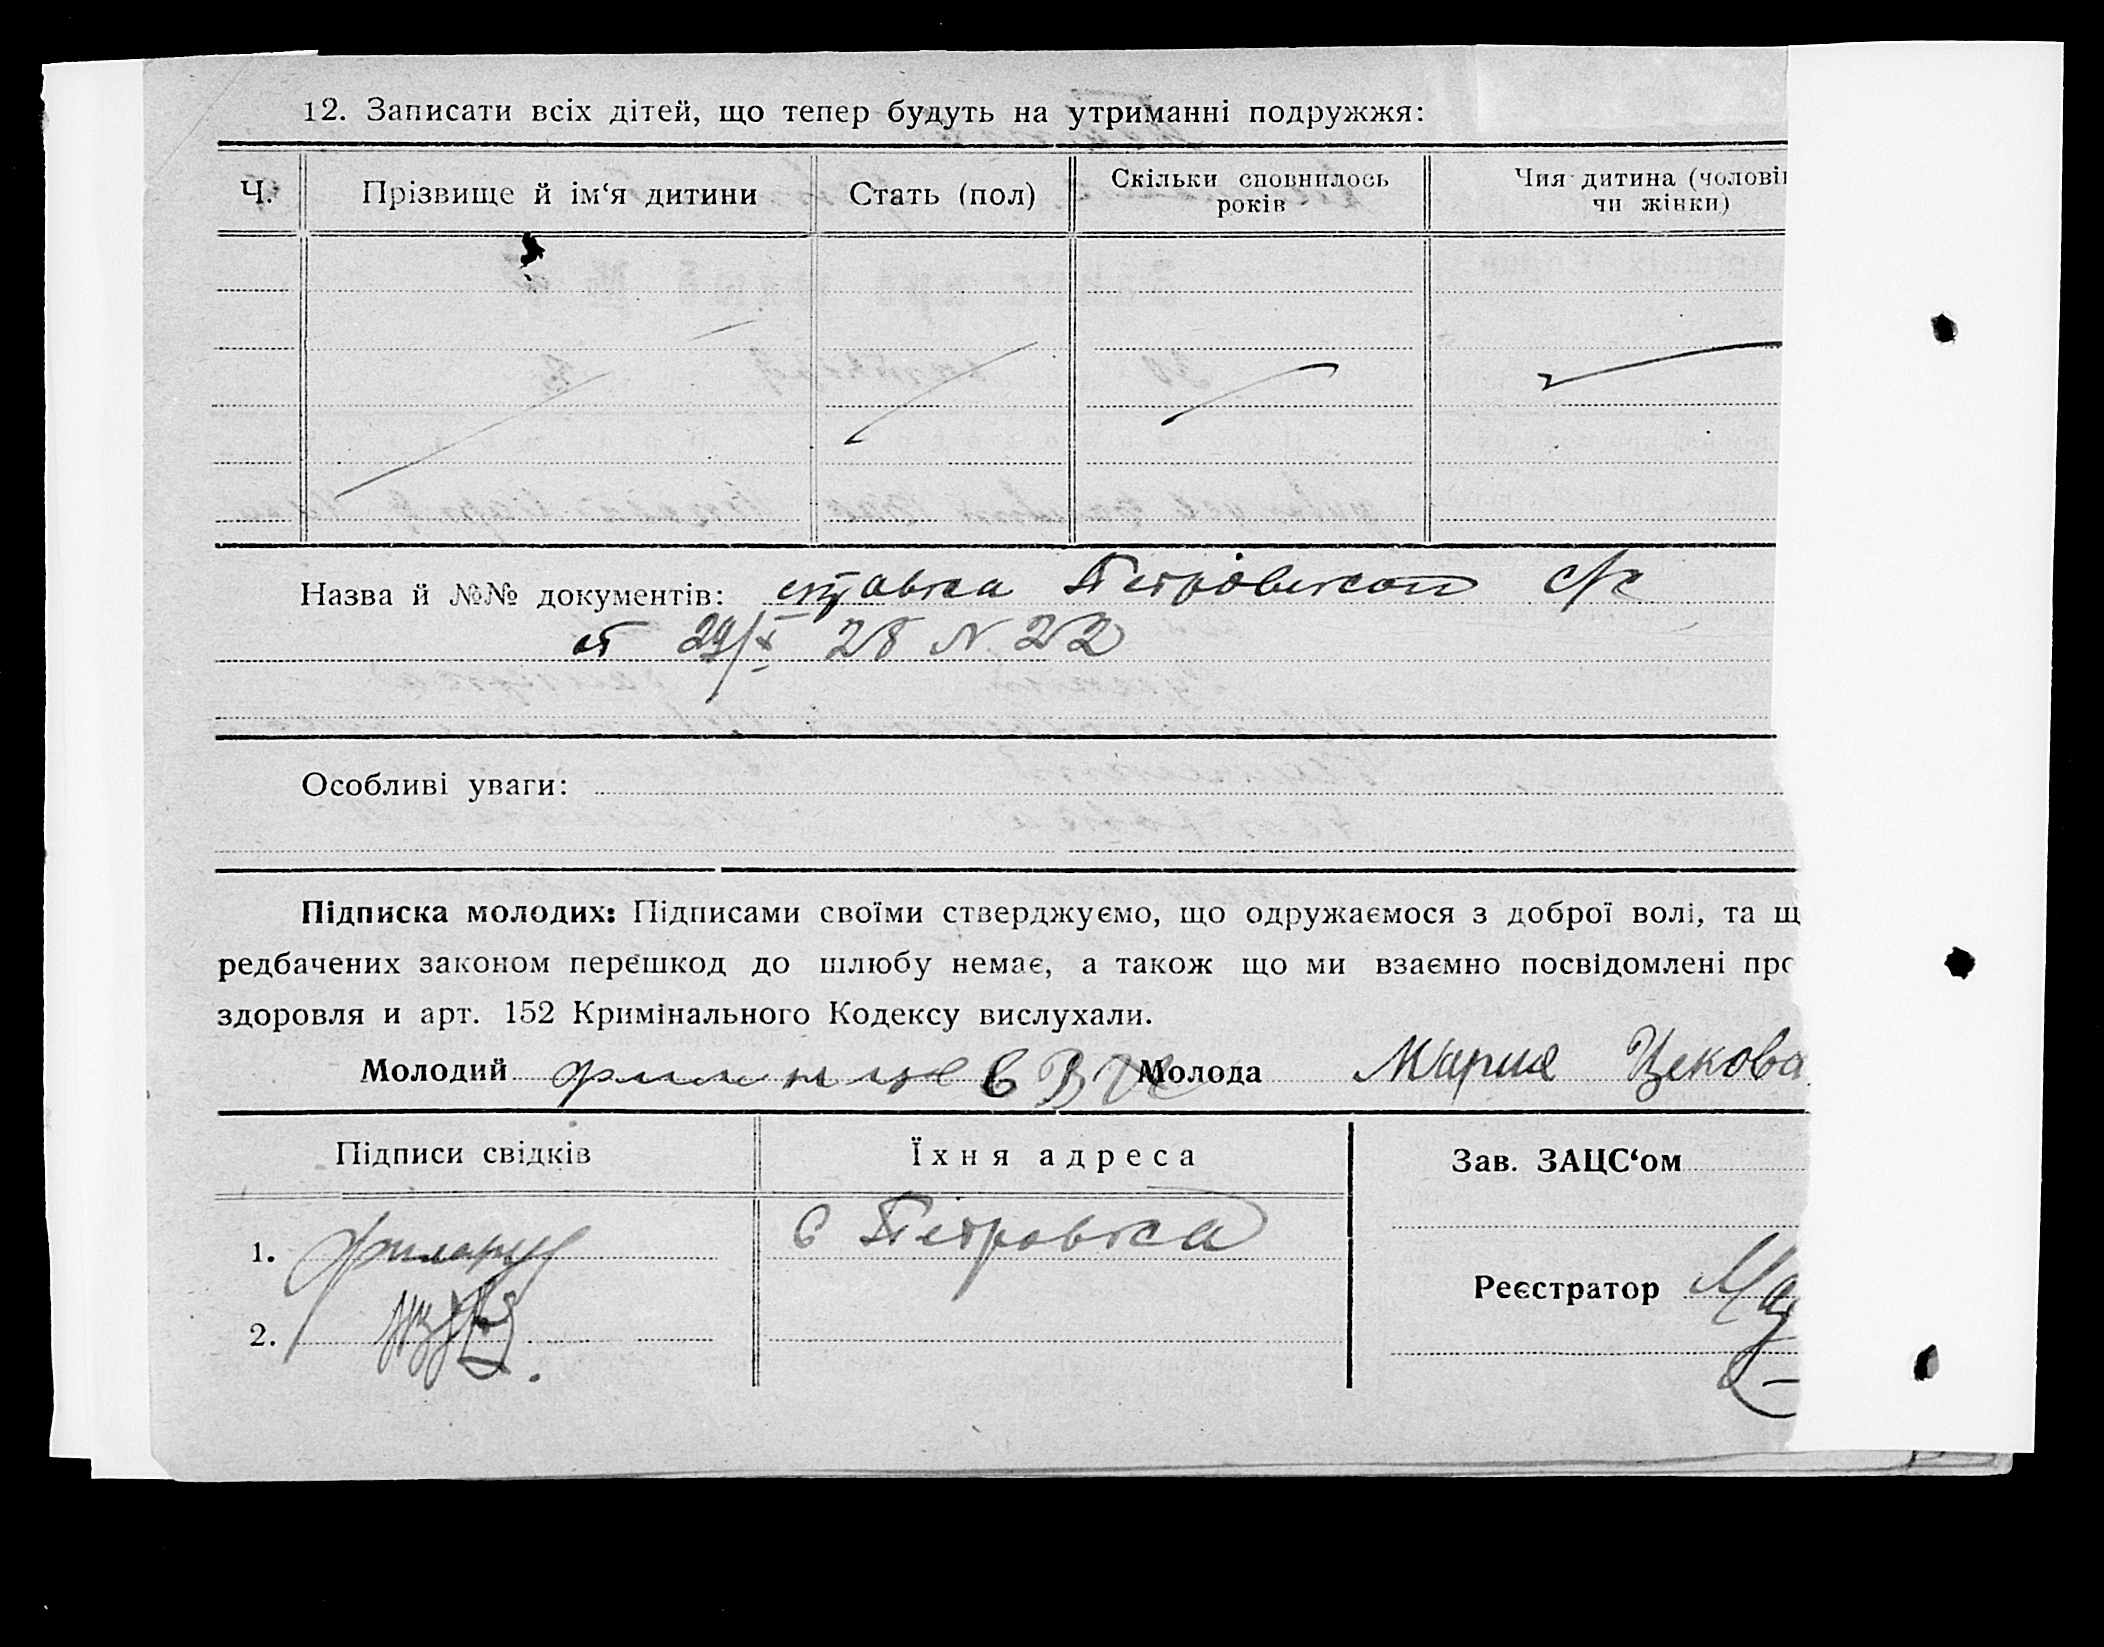 12. Записати всіх дітей, що тепер будуть на утриманні подружжя:
Ч. Прізвище й ім‘я дитини Стать (пол) Скільки сповнилось років Чия дитина (чолові чи жінки)
Назва й №№ документів: справка Петровской с/с
от 29/X 28 N 22
Особливі уваги:
Підписка молодих: Підписами своїми стверджуємо, що одружаємося з доброї волі, та щ
редбачених законом перешкод до шлюбу немає, а також що ми взаємно посвідомлені про
здоровля и арт. 152 Кримінального Кодексу вислухали.
Молодий Молода Мария Цекова
Підписи свідків Їхня адреса Зав. ЗАЦС‘ом
1. С Петровка
Реєстратор
2.